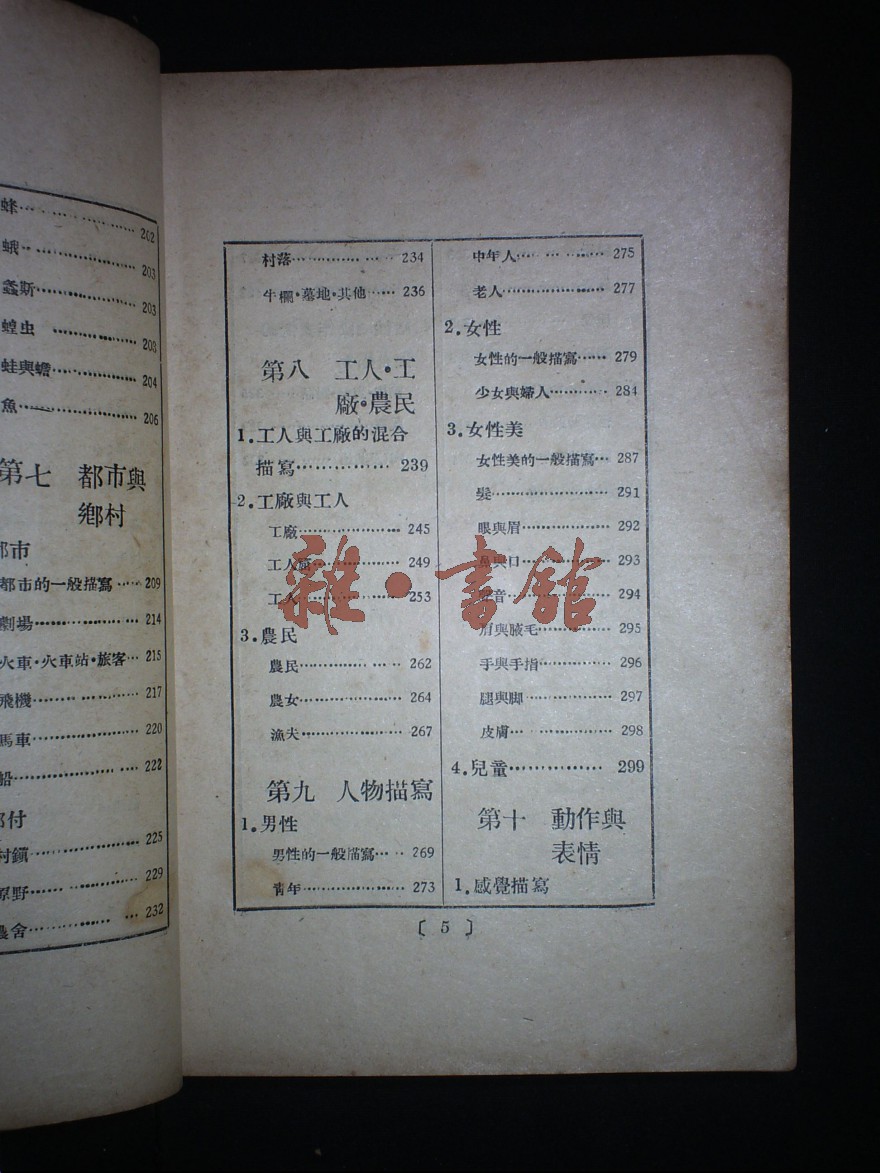 蜂 202
蛾 203
螽斯 203
蝗虫 203
蛙與蟾 204
魚 206
第七 都市與
鄉村
都市的一般描寫 209
劇場 214
火車·火車站·旅客 215
飛機 217
馬車 220
船 222
村鎮 225
原野 229
農舍 232
村落 234
牛欄·墓地·其他 236
第八 工人·工
廠·農民
1.工人與工廠的混合
描寫 239
2.工廠與工人
工廠 245
工人 249
工人 253
3.農民
農民 262
農女 264
漁夫 267
第九 人物描寫
1.男性
男性的一般描寫 269
靑年 273
中年人 275
老人 277
2.女性
女性的一般描寫 279
少女與婦人 284
3.女性美
女性美的一般描寫 287
髮 291
眼與眉 292
鼻與口 293
音 294
肩與腋毛 295
手與手指 296
腿與脚 297
皮膚 298
4.兒童 299
第十 動作與
表情
1.感覺描寫
〔 5 〕
雜·書館